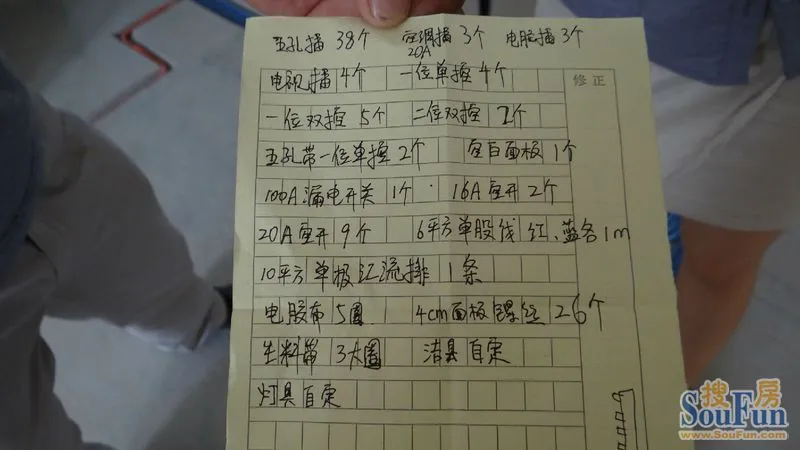 五孔插 38个 空调插 3个 电脑插 3个
20A
电视插 4个 一位单控 4个
修正
一位双控 5个 二位双控 2个
五孔带一位单控 2个 空白面板 1个
100A漏电开关 1个 16A空开 2个
20A空开 9个 6平方单股线 红、蓝各1m
10平方单极汇流排 1条
电胶布 5圈 4cm面板镙丝 26个
生料带 3大圈 洁具自定
灯具自定
搜房
SouFun
www.SouFun.com